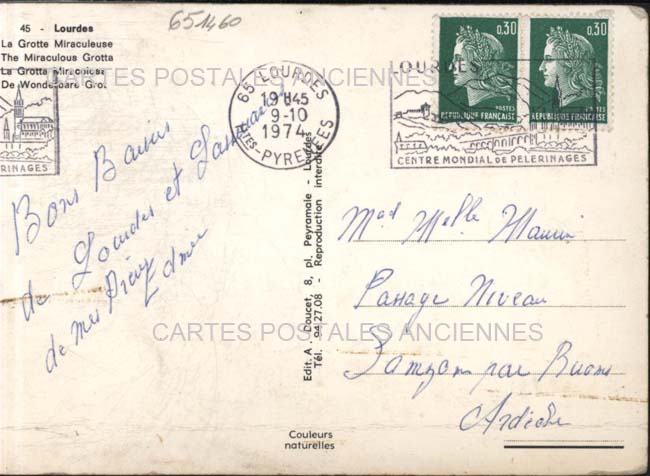 651460
45 - Lourdes
La Grotte Miraculeuse
The Miraculous Grotto
La Grotta Miracolosa
De Wonderbare Grot
CARTES POSTALES ANCIENNES
65 LOURDES
19H45
9-10
1974
HTES-PYRENEES
LOURDES
CENTRE MONDIAL DE PELERINAGES
RINAGES
0,30
POSTES
REPUBLIQUE FRANÇAISE
0,30
POSTES
REPUBLIQUE FRANÇAISE
Bons Baisers
de Lourdes et
de mes
Edit. A. Doucet, 8, pl. Peyramale - Lourdes
Tél. 94.27.08 - Reproduction interdite
Mad Melle
Passage Niveau
par Ruoms
Ardèche
CARTES POSTALES ANCIENNES
Couleurs
naturelles